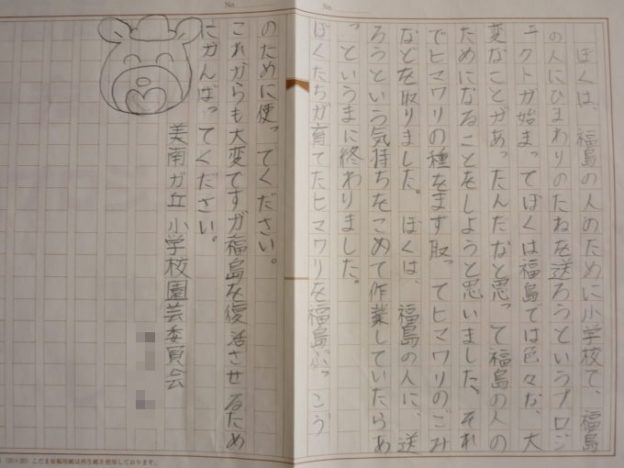 No.
No.
ぼくは、福島の人のために小学校で、福島
の人にひまわりのたねを送ろうというプロジ
ェクトが始まってぼくは福島では色々な、大
変なことがあったんだなと思って福島の人の
ためになることをしようと思いました。それ
でヒマワリの種をまず取ってヒマワリのごみ
などを取りました。ぼくは、福島の人に、送
ろうという気持ちをこめて作業していたらあ
っというまに終わりました。
ぼくたちが育てたヒマワリを福島ふっこう
のために使ってください。
これからも大変ですが福島を復活させるため
にがんばってください。
美南ガ丘小学校園芸委員会
(20×20) こだま原稿用紙は再生紙を使用しております。